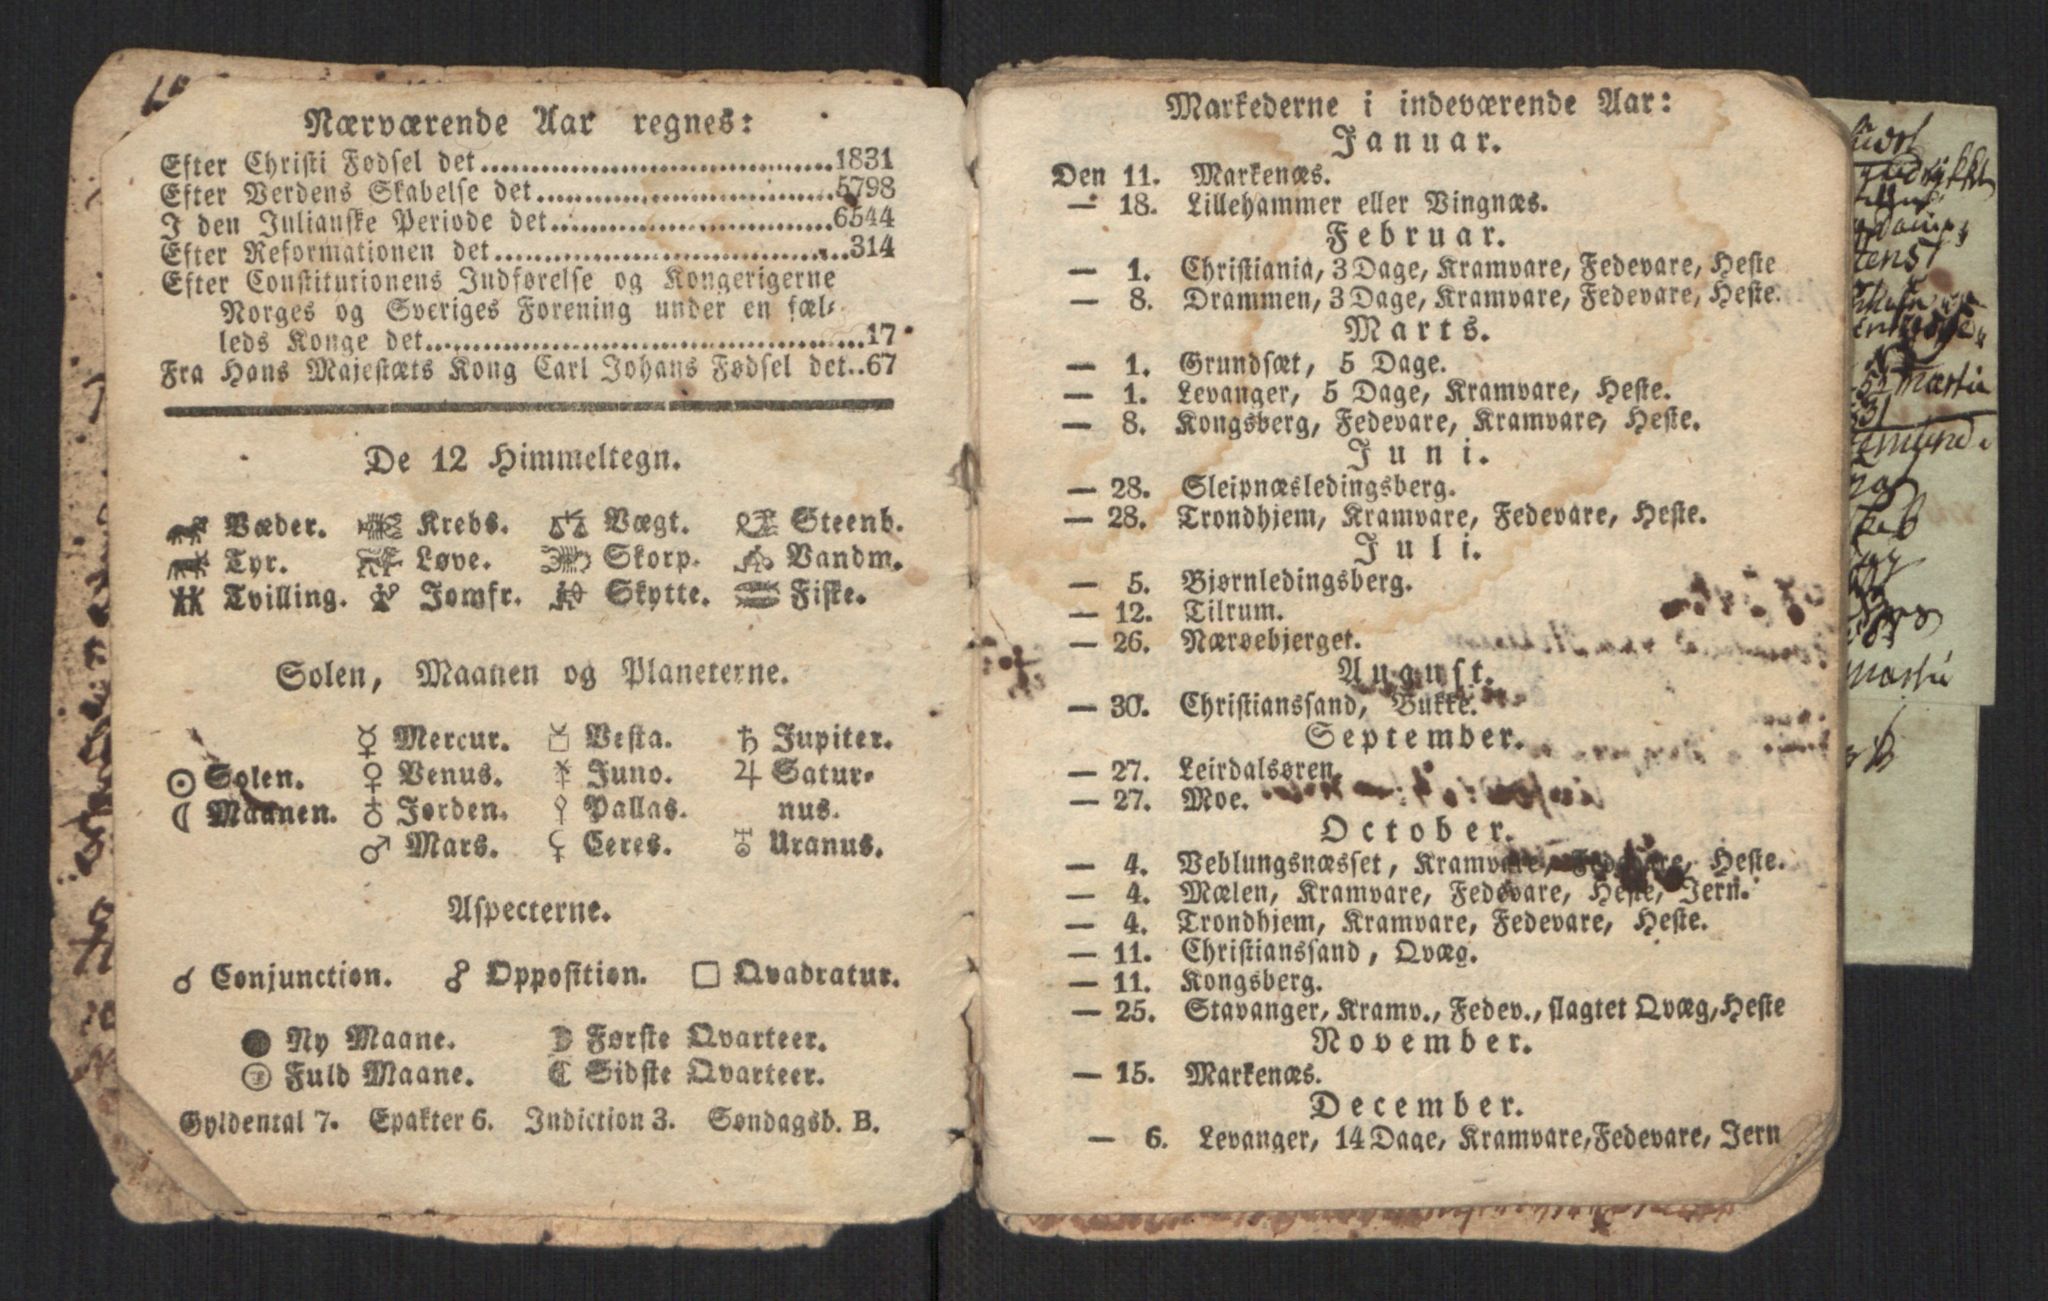 Nærværende Aar regnes:
Efter Christi Fødsel det................................1831
Efter Verdens Skabelse det...........................5798
I den Julianske Periode det..........................6544
Efter Reformationen det................................314
Efter Constitutionens Indførelse og Kongerigerne
Norges og Sveriges Forening under en fæl-
leds Konge det........................................17
Fra Hans Majestæts Kong Carl Johans Fødsel det..67
De 12 Himmeltegn.
Væder. Krebs. Vægt. Steenb.
Tyr. Løve. Skorp. Vandm.
Tvilling. Jomfr. Skytte. Fiske.
Solen, Maanen og Planeterne.
☿ Mercur. Vesta. ♄ Jupiter.
☉ Solen. ♀ Venus. Juno. ♃ Satur-
☾ Maanen. ♁ Jorden. Pallas. nus.
♂ Mars. Ceres. Uranus.
Aspecterne.
☌ Conjunction. ☍ Opposition. □ Qvadratur.
● Ny Maane. Første Qvarteer.
Fuld Maane. Sidste Qvarteer.
Gyldental 7. Epakter 6. Indiction 3. Søndagsb. B.
Markederne i indeværende Aar:
Januar.
Den 11. Markenæs.
— 18. Lillehammer eller Vingnæs.
Februar.
— 1. Christiania, 3 Dage, Kramvare, Fedevare, Heste
— 8. Drammen, 3 Dage, Kramvare, Fedevare, Heste.
Marts.
— 1. Grundsæt, 5 Dage.
— 1. Levanger, 5 Dage, Kramvare, Heste.
— 8. Kongsberg, Fedevare, Kramvare, Heste.
Juni.
— 28. Sleipnæsledingsberg.
— 28. Trondhjem, Kramvare, Fedevare, Heste.
Juli.
— 5. Bjørnledingsberg.
— 12. Tilrum.
— 26. Nærøebjerget.
August.
— 30. Christianssand, Bukke.
September.
— 27. Leirdalsøren.
— 27. Moe.
October.
— 4. Veblungsnæsset, Kramvare, Fedevare, Heste.
— 4. Mælen, Kramvare, Fedevare, Heste, Jern.
— 4. Trondhjem, Kramvare, Fedevare, Heste.
— 11. Christianssand, Qvæg.
— 11. Kongsberg.
— 25. Stavanger, Kramv., Fedev., slagtet Qvæg, Heste
November.
— 15. Markenæs.
December.
— 6. Levanger, 14 Dage, Kramvare, Fedevare, Jern